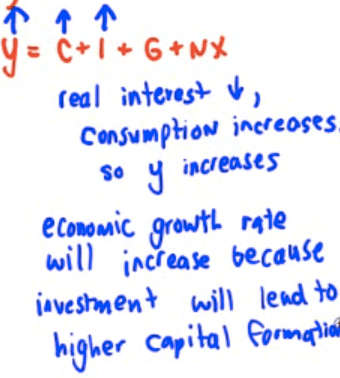 ↑ ↑ ↑
y = C + I + G + NX
real interest ↓,
consumption increases,
so y increases
economic growth rate
will increase because
investment will lead to
higher capital formation